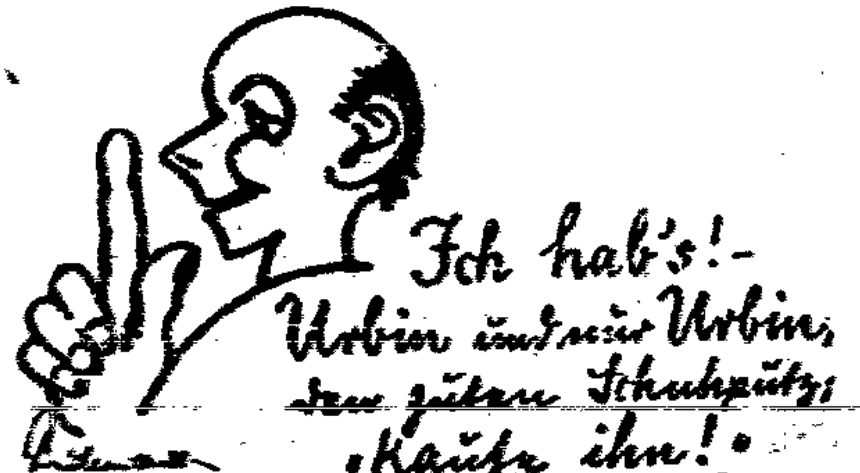 Ich hab's! -
Urbin und nur Urbin,
den guten Schuhputz,
kaufe ihn!"